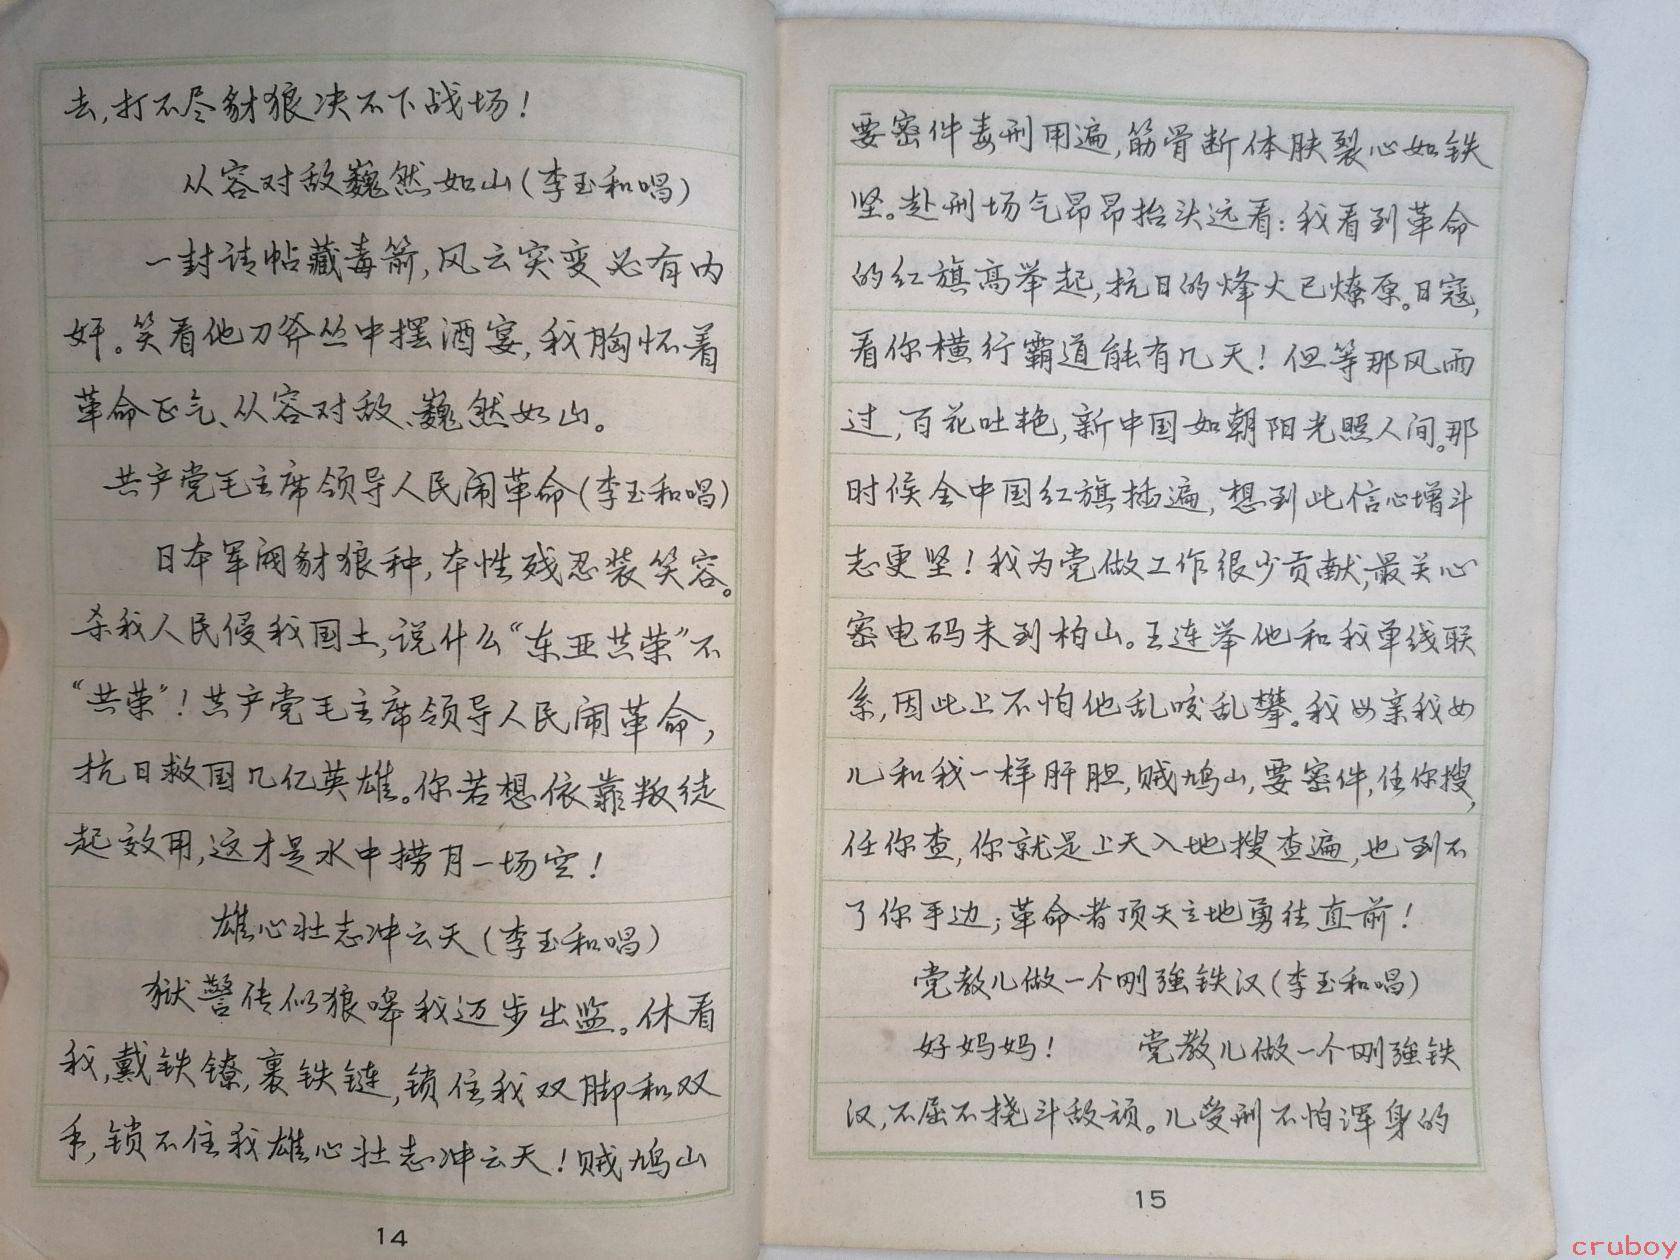 去,打不尽豺狼决不下战场！
从容对敌巍然如山(李玉和唱)
一封请帖藏毒箭,风云突变必有内
奸。笑看他刀斧丛中摆酒宴,我胸怀着
革命正气、从容对敌、巍然如山。
共产党毛主席领导人民闹革命(李玉和唱)
日本军阀豺狼种,本性残忍装笑容。
杀我人民侵我国土,说什么“东亚共荣”不
“共荣”！共产党毛主席领导人民闹革命,
抗日救国几亿英雄。你若想依靠叛徒
起效用,这才是水中捞月一场空！
雄心壮志冲云天(李玉和唱)
狱警传似狼嗥我迈步出监。休看
我,戴铁镣,裹铁链,锁住我双脚和双
手,锁不住我雄心壮志冲云天！贼鸠山
14
要密件毒刑用遍,筋骨断体肤裂心如铁
坚。赴刑场气昂昂抬头远看：我看到革命
的红旗高举起,抗日的烽火已燎原。日寇,
看你横行霸道能有几天！但等那风雨
过,百花吐艳,新中国如朝阳光照人间。那
时候全中国红旗插遍,想到此信心增斗
志更坚！我为党做工作很少贡献,最关心
密电码未到柏山。王连举他和我单线联
系,因此上不怕他乱咬乱攀。我母亲我女
儿和我一样肝胆,贼鸠山,要密件,任你搜,
任你查,你就是上天入地搜查遍,也到不
了你手边；革命者顶天立地勇往直前！
党教儿做一个刚强铁汉(李玉和唱)
好妈妈！ 党教儿做一个刚强铁
汉,不屈不挠斗敌顽。儿受刑不怕浑身的
15
cruboy